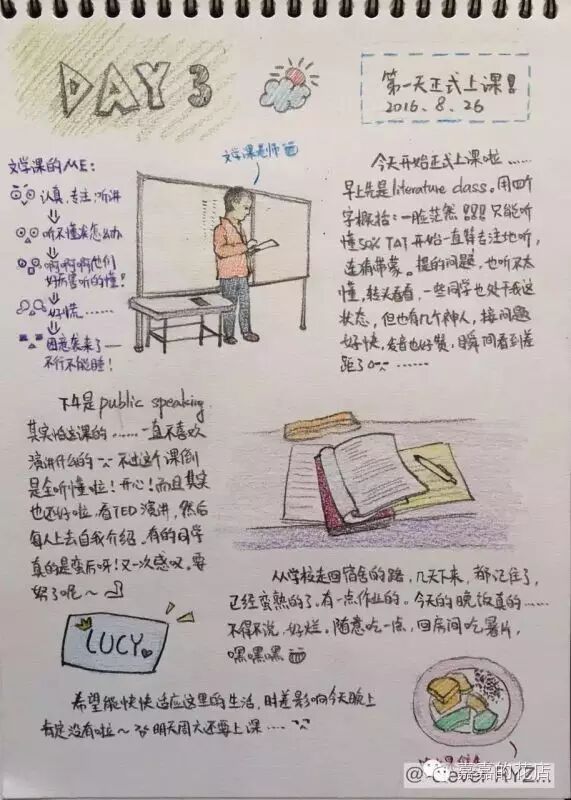 DAY 3
第一天正式上课!
2016.8.26
文学课的ME:
认真,专注,听讲
听不懂该怎么办
啊啊啊他们
好厉害听的懂!
好慌……
困意袭来了—
不行不能睡!
文学课老师
今天开始正式上课啦……
早上先是literature class.用四
字概括:一脸茫然!!!只能听
懂50% TAT 开始一直算专注地听,
连猜带蒙。提的问题,也听不太
懂,转头看看,一些同学也处于我这
状态,但也有几个神人,接问题
好快,发音也好赞,瞬间看到差
距了……
下午是public speaking.
其实怕这课的……一直不喜欢
演讲什么的 不过这个课倒
是全听懂啦!开心!而且其实
也还好啦,看TED演讲,然后
每人上去自我介绍,有的同学
真的是蛮厉害呀!又一次感叹,要
努力呢~
从学校走回宿舍的路,几天下来,都记住了,
已经蛮熟的了。有一点作业的。今天的晚饭真的……
不得不说,好烂,随意吃一点,回房间吃薯片,
嘿嘿嘿
LUCY
希望能快快适应这里的生活,时差影响今天晚上
肯定没有啦~ 明天周六还要上课……
@Clever HYZ...
嘉嘉的花店